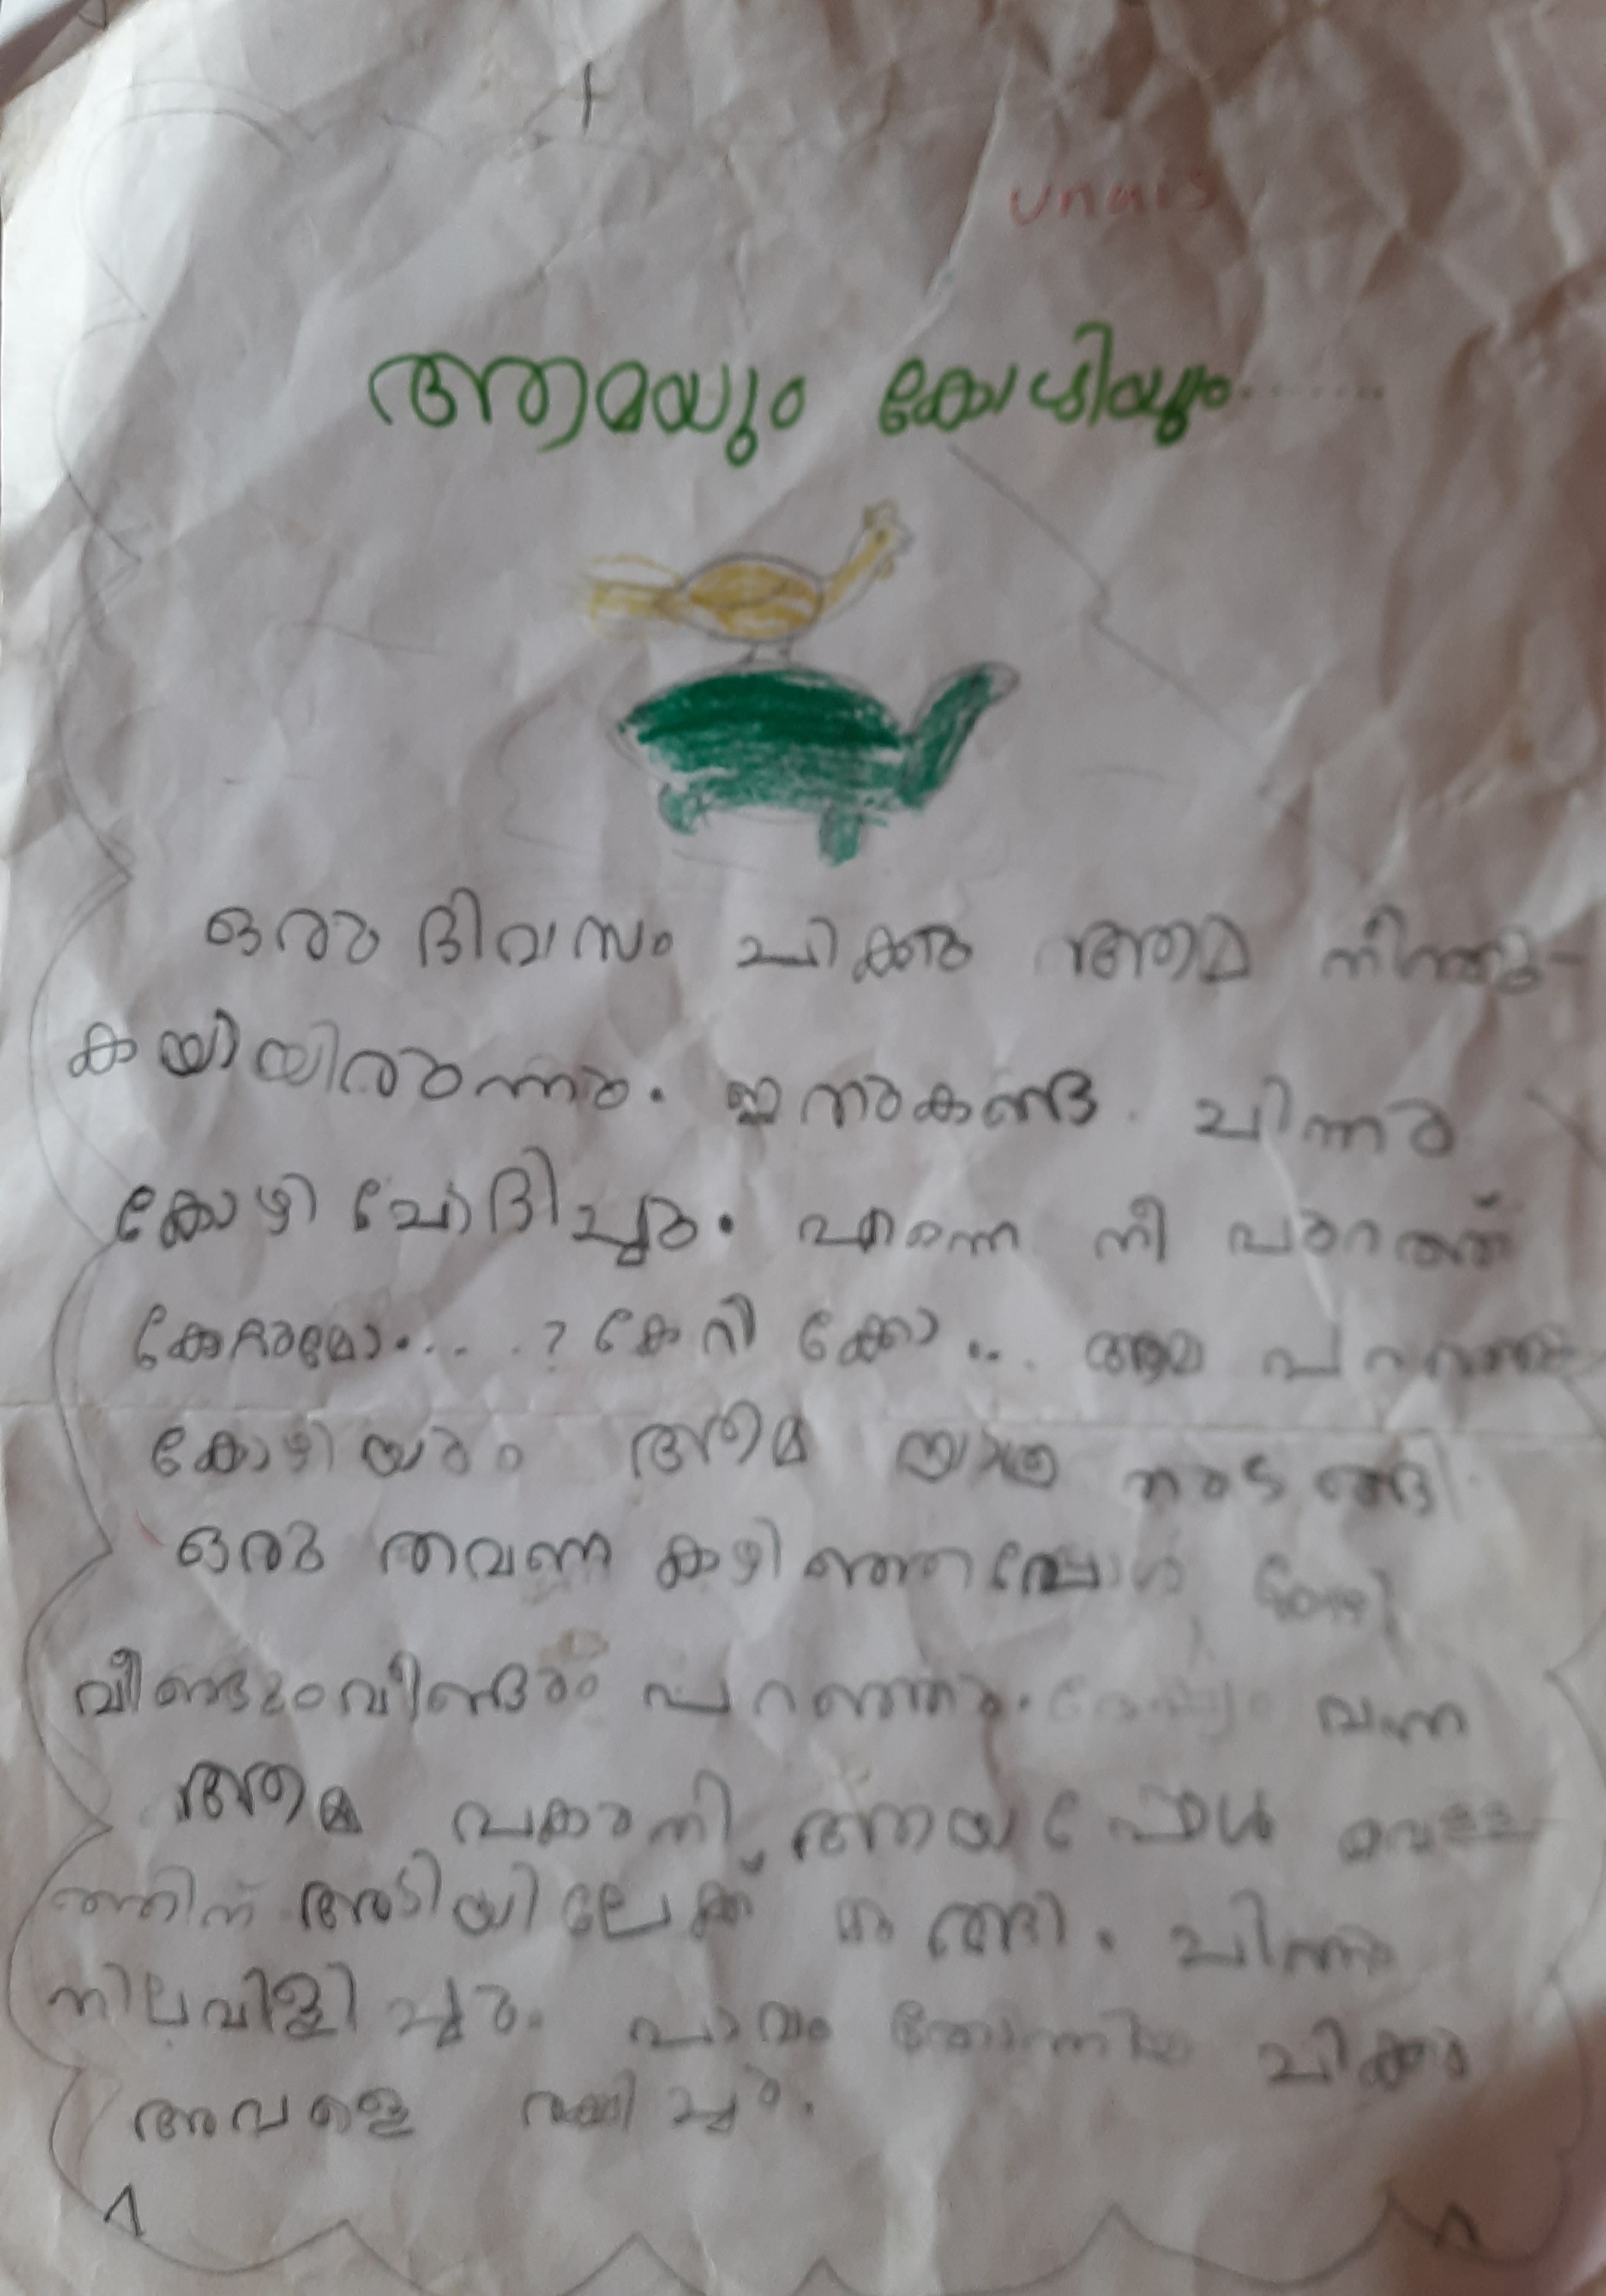 unais
ആമയും കോഴിയും........
ഒരു ദിവസം ചിക്കു ആമ നീന്തു-
കയിയിരുന്നു. ഇതുകണ്ട ചിന്നു
കോഴി ചോദിച്ചു. എന്നെ നീ പുറത്ത്
കേറ്റുമോ.....? കേറിക്കോ... ആമ പറഞ്ഞു
കോഴിയും ആമ യാത്ര തുടങ്ങി.
ഒരു തവണ കഴിഞ്ഞപ്പോൾ കോഴി
വീണ്ടുംവീണ്ടും പറഞ്ഞു. വന്ന
ആമ പകുതി ആയപ്പോൾ വെള്ള
ത്തിന് അടിയിലേക്ക് മുങ്ങി. ചിന്നു
നിലവിളിച്ചു. പാവം തോന്നിയ ചിക്കു
അവളെ രക്ഷിച്ചു.